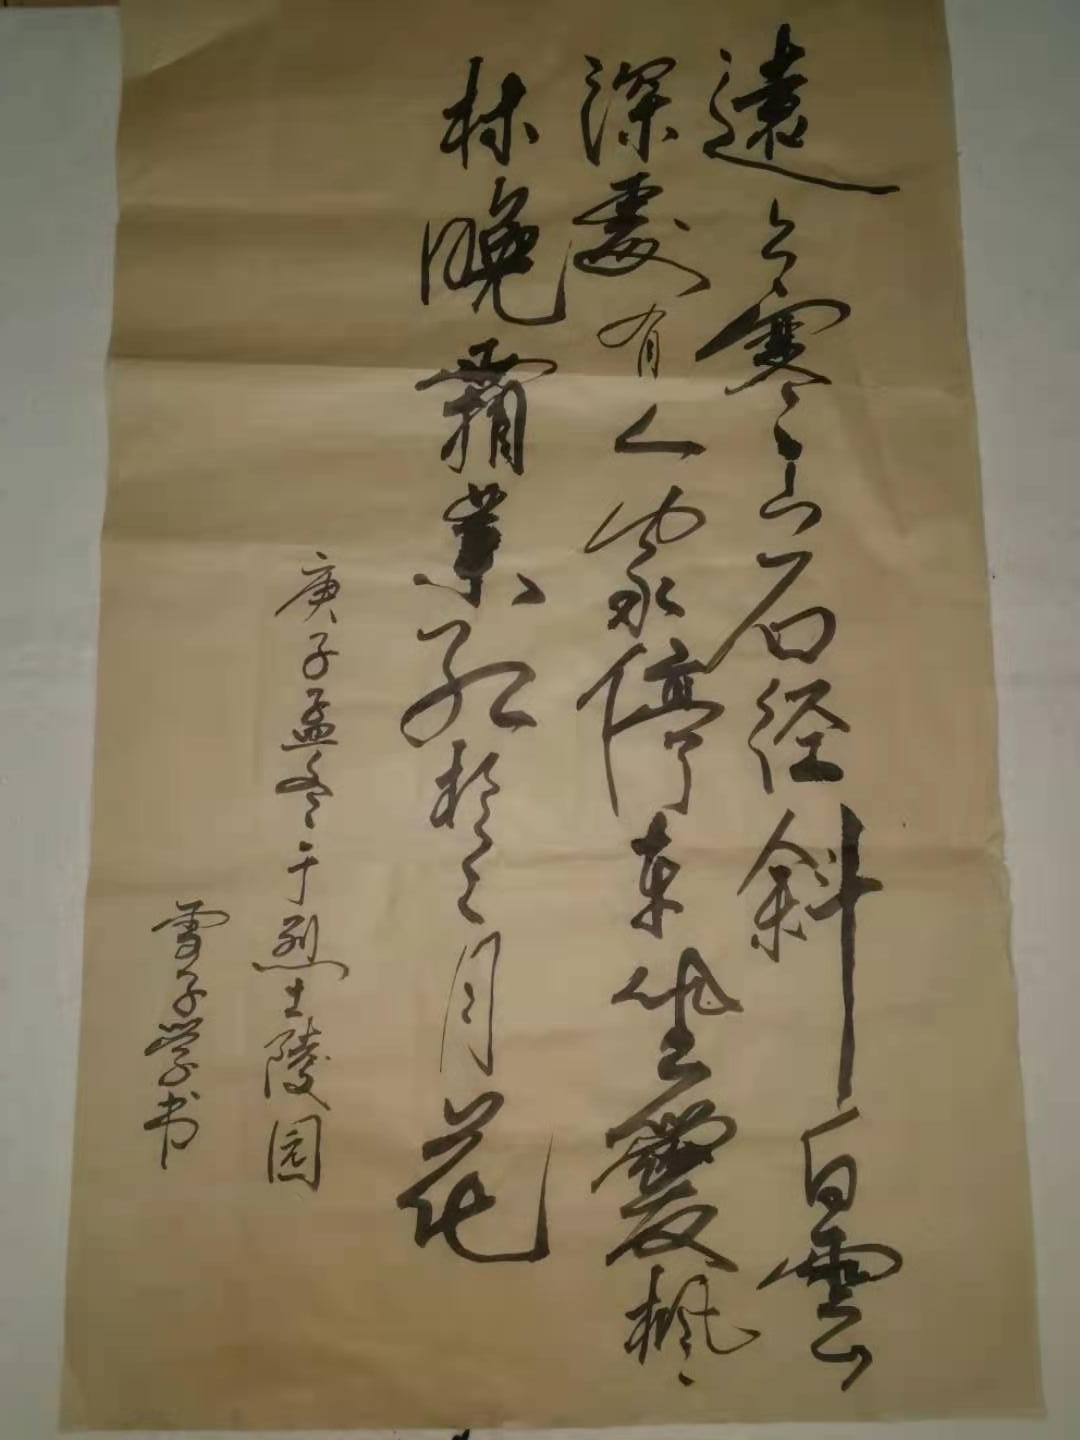 遠上寒山石径斜白雲
深處有人家停車坐愛楓
林晚霜葉红於二月花
庚子孟冬于烈士陵园
雪子学书